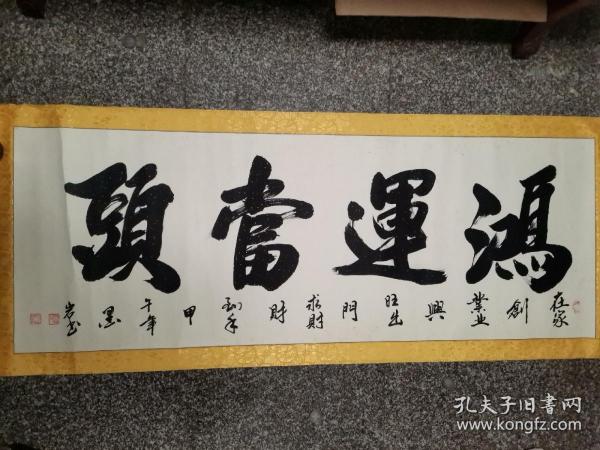 鴻運當頭
在家創業業興旺出門求財財到手甲午年墨岩書
孔夫子旧書网
www.kongfz.com